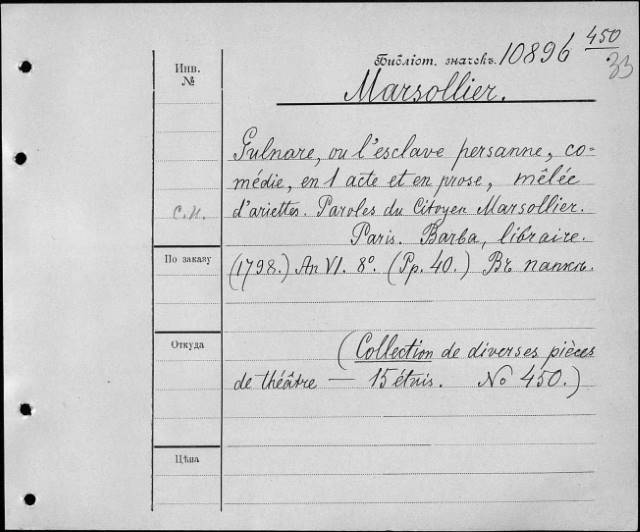 Инв.
№
Библіот. значекъ. 10896 450
33
Marsollier.
Gulnare, ou l'esclave persanne, co-
médie, en 1 acte et en prose, mêlée
с.п. d'ariettes. Paroles du Citoyen Marsollier.
Paris. Barba, libraire.
По заказу
(1798.) An VI. 8º. (Pp. 40.) Въ папкѣ.
Откуда
(Collection de diverses pièces
de théâtre — 15 étuis. No 450.)
Цѣна